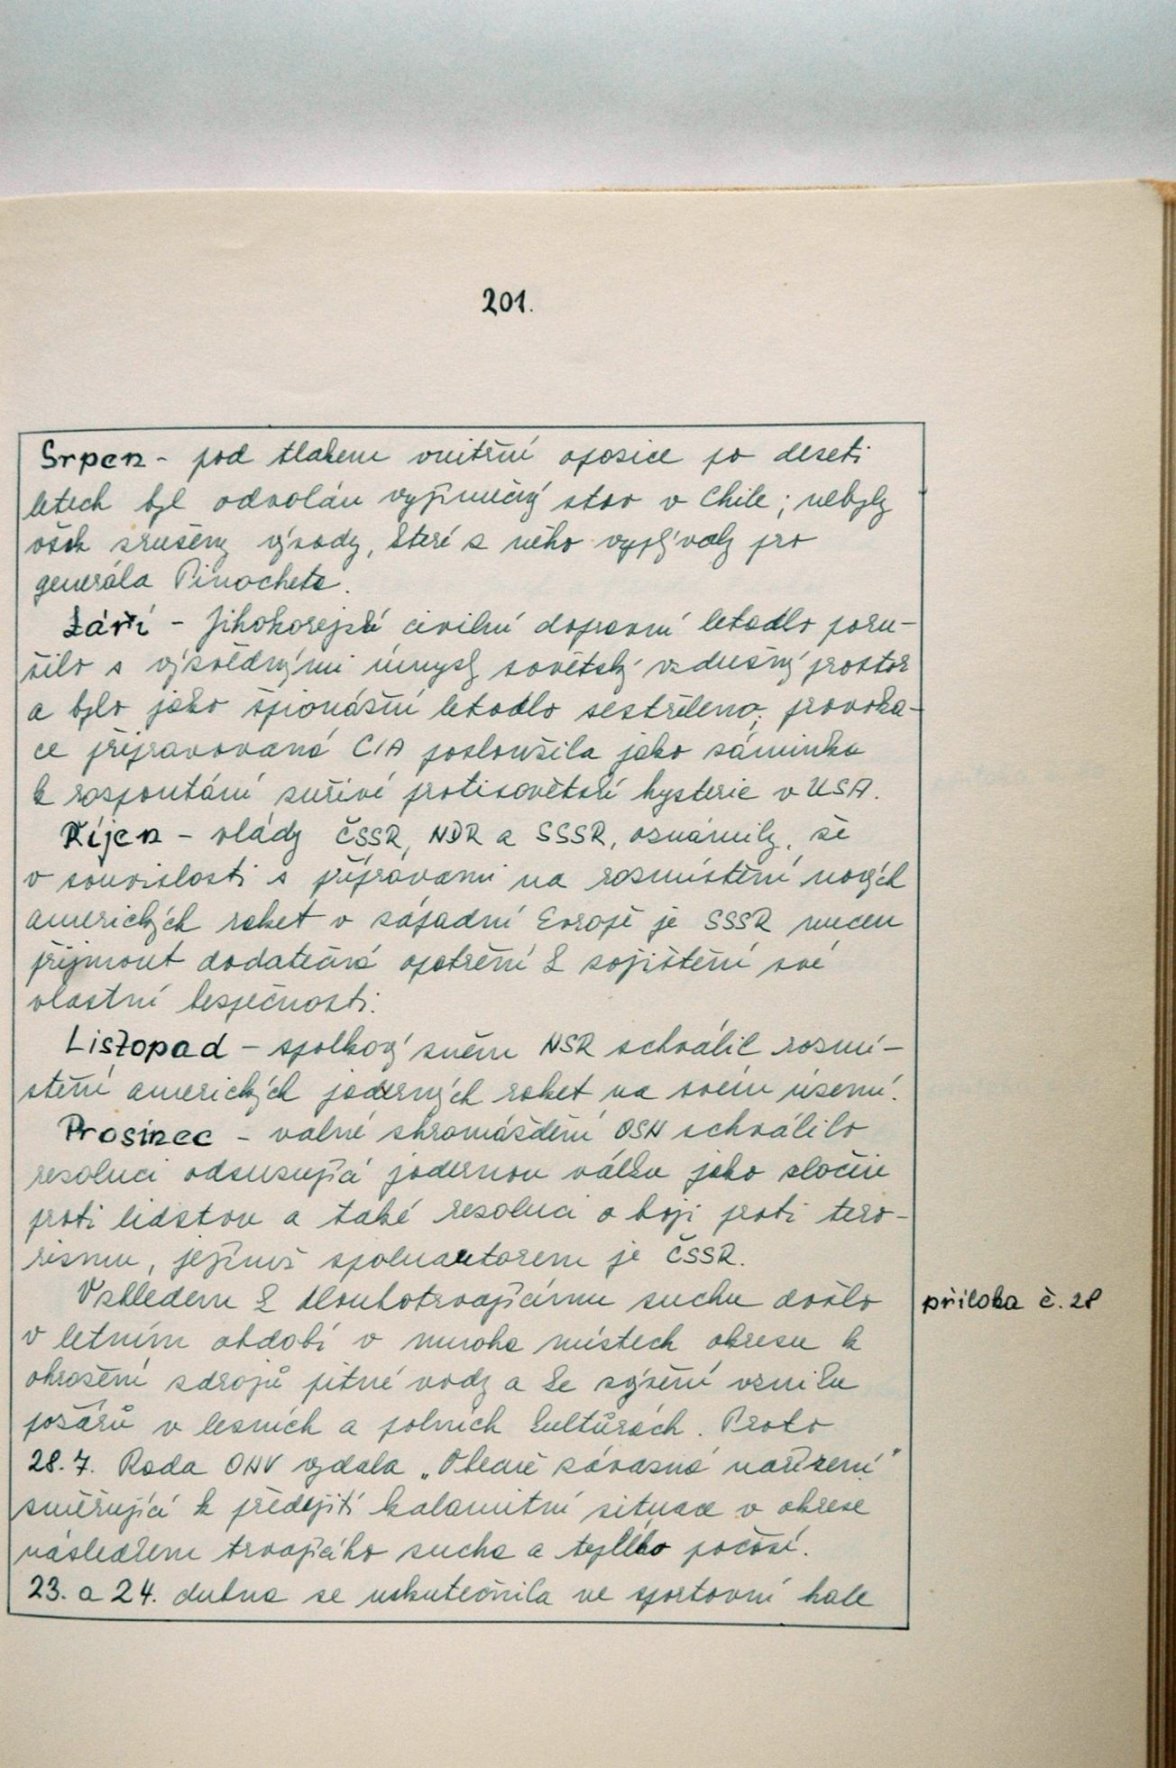 201.
Srpen - pod tlakem vnitřní oposice po deseti
letech byl odvolán vyjímečný stav v Chile; nebyly
však zrušeny výsady, které z něho vyplývaly pro
generála Pinocheta.
Září - Jihokorejské civilní dopravní letadlo poru-
šilo s výzvědnými úmysly sovětský vzdušný prostor
a bylo jako špionážní letadlo sestřeleno; provoka-
ce připravovaná CIA posloužila jako záminka
k rozpoutání zuřivé protisovětské hysterie v USA.
Říjen - vlády ČSSR, NDR a SSSR, oznámily, že
v souvislosti s přípravami na rozmístění nových
amerických raket v západní Evropě je SSSR nucen
přijmout dodatečná opatření k zajištění své
vlastní bezpečnosti.
Listopad - spolkový sněm NSR schválil rozmí-
stění amerických jaderných raket na svém území.
Prosinec - valné shromáždění OSN schválilo
resoluci odsuzující jadernou válku jako zločin
proti lidstvu a také resoluci o boji proti tero-
rismu, jejímž spoluautorem je ČSSR.
Vzhledem k dlouhotrvajícímu suchu došlo
příloha č. 28
v letním období v mnoha místech okresu k
ohrožení zdrojů pitné vody a ke zvýšení vzniku
požárů v lesních a polních kulturách. Proto
28.7. Rada ONV vydala „Obecně závazná nařízení"
směřující k předejití kalamitní situace v okrese
následkem trvajícího sucha a teplého počasí.
23. a 24. dubna se uskutečnila ve sportovní hale